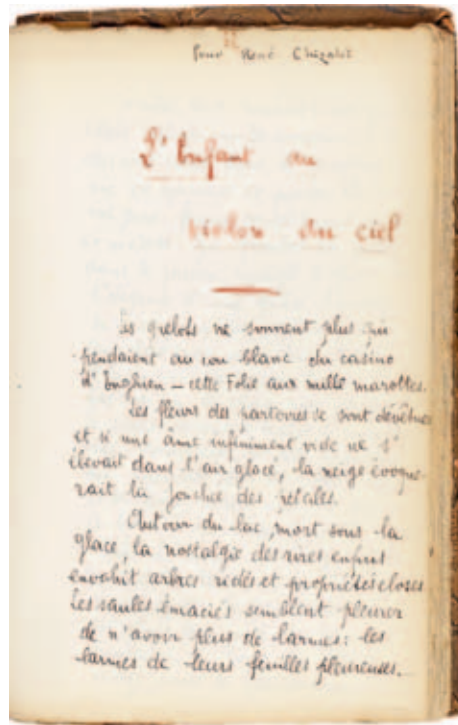 Pour René Chizalet
L'Enfant au
violon du ciel
Les grelots ne sonnent plus qui
pendaient au cou blanc du casino
d'Enghien — cette Folie aux mille marottes.
Les fleurs des parterres se sont dévêtues
et si une âme infiniment vide ne s'
élevait dans l'air glacé, la neige évoque-
rait la jonchée des pétales.
Autour du lac, mort sous la
glace, la nostalgie des rires enfuis
envahit arbres ridés et propriétés closes.
Les saules émaciés semblent pleurer
de n'avoir plus de larmes : les
larmes de leurs feuilles pleureuses.